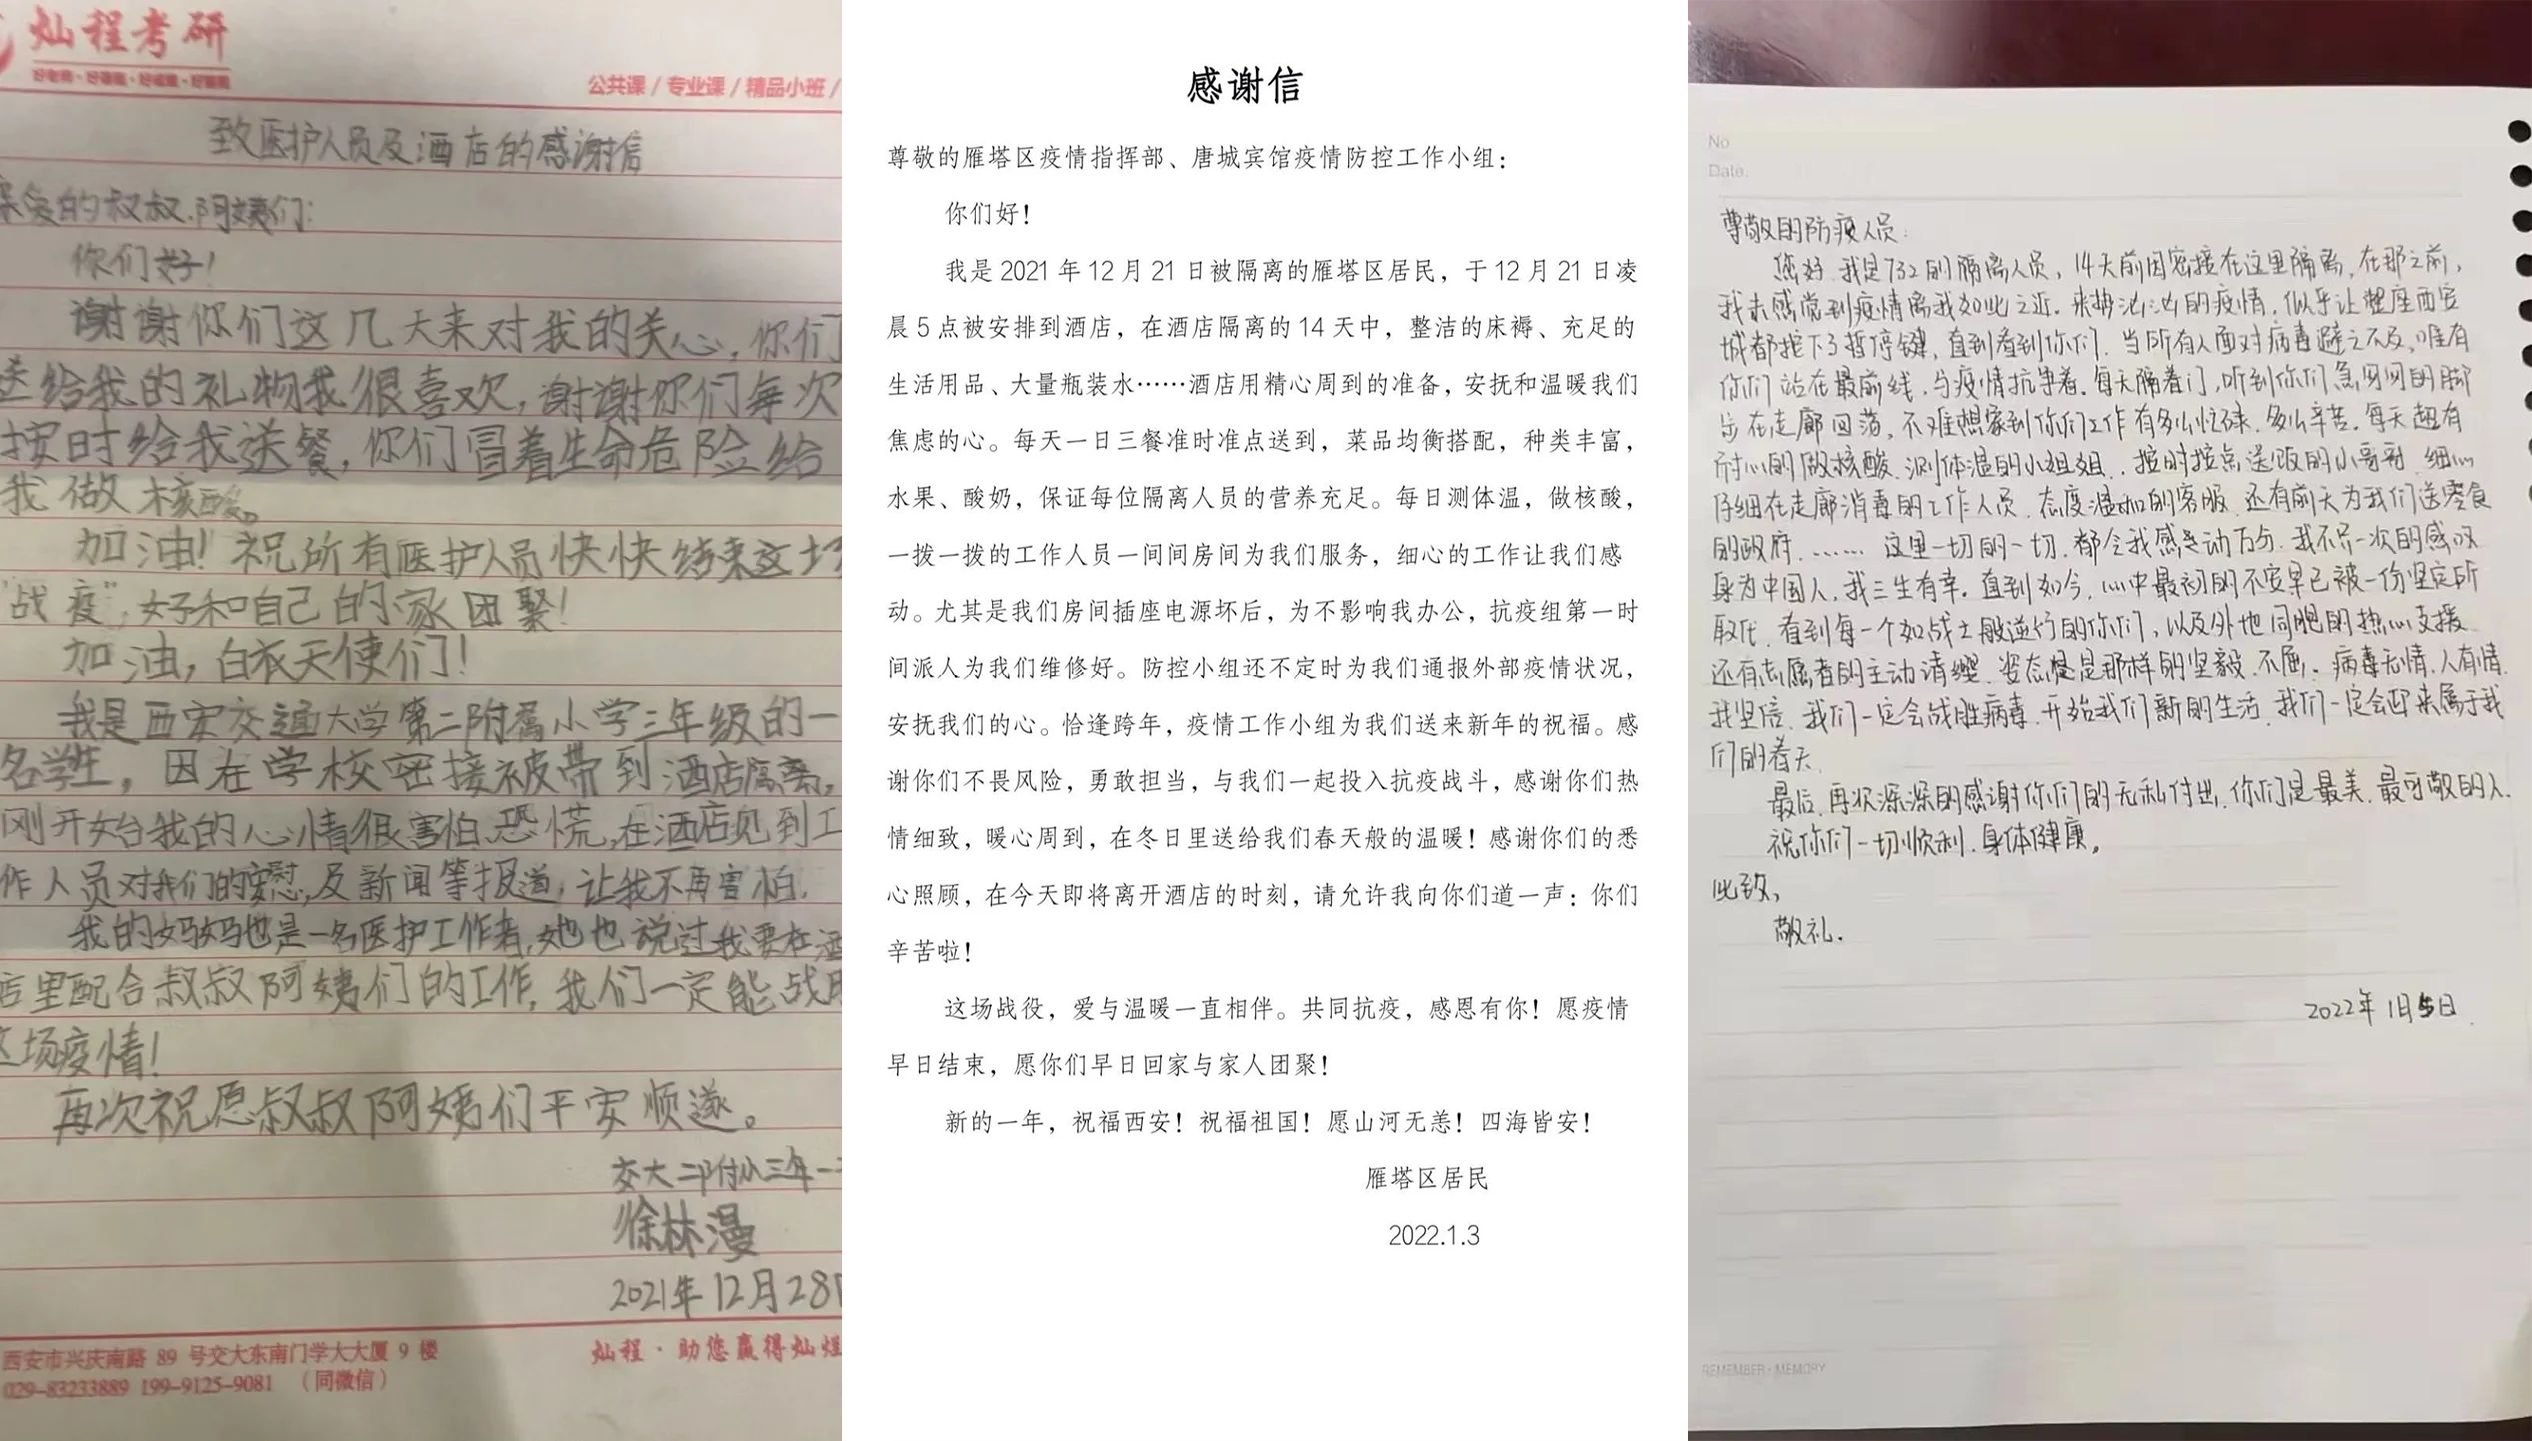 灿程考研
公共课 / 专业课 / 精品小班 /
致医护人员及酒店的感谢信
亲爱的叔叔、阿姨们:
你们好!
谢谢你们这几天来对我的关心,你们
送给我的礼物我很喜欢,谢谢你们每次
按时给我送餐,你们冒着生命危险给
我做核酸。
加油!祝所有医护人员快快结束这场
“战疫”,好和自己的家团聚!
加油,白衣天使们!
我是西安交通大学第二附属小学三年级的一
名学生,因在学校密接被带到酒店隔离,
刚开始我的心情很害怕、恐慌,在酒店见到工
作人员对我们的安慰,及新闻等报道,让我不再害怕.
我的妈妈也是一名医护工作者,她也说过我要在酒
店里配合叔叔阿姨们的工作,我们一定能战胜
这场疫情!
再次祝愿叔叔阿姨们平安顺遂。
交大二附小三年一
徐林漫
2021年12月28日
西安市兴庆南路 89 号交大东南门学大大厦 9 楼
029-83233889 199-9125-9081 (同微信)
灿程·助您赢得灿煌
感谢信
尊敬的雁塔区疫情指挥部、唐城宾馆疫情防控工作小组:
你们好!
我是 2021 年 12 月 21 日被隔离的雁塔区居民,于 12 月 21 日凌
晨 5 点被安排到酒店,在酒店隔离的 14 天中,整洁的床褥、充足的
生活用品、大量瓶装水……酒店用精心周到的准备,安抚和温暖我们
焦虑的心。每天一日三餐准时准点送到,菜品均衡搭配,种类丰富,
水果、酸奶,保证每位隔离人员的营养充足。每日测体温,做核酸,
一拨一拨的工作人员一间间房间为我们服务,细心的工作让我们感
动。尤其是我们房间插座电源坏后,为不影响我办公,抗疫组第一时
间派人为我们维修好。防控小组还不定时为我们通报外部疫情状况,
安抚我们的心。恰逢跨年,疫情工作小组为我们送来新年的祝福。感
谢你们不畏风险,勇敢担当,与我们一起投入抗疫战斗,感谢你们热
情细致,暖心周到,在冬日里送给我们春天般的温暖!感谢你们的悉
心照顾,在今天即将离开酒店的时刻,请允许我向你们道一声:你们
辛苦啦!
这场战役,爱与温暖一直相伴。共同抗疫,感恩有你!愿疫情
早日结束,愿你们早日回家与家人团聚!
新的一年,祝福西安!祝福祖国!愿山河无恙!四海皆安!
雁塔区居民
2022.1.3
No
Date.
尊敬的防疫人员:
您好.我是732的隔离人员,14天前因密接在这里隔离,在那之前,
我未感觉到疫情离我如此之近.来势汹汹的疫情.似乎让整座西安
城都按下了暂停键,直到看到你们.当所有人面对病毒避之不及,唯有
你们站在最前线,与疫情抗争着.每天隔着门,听到你们急匆匆的脚
步在走廊回荡,不难想象到你们工作有多么忙碌.多么辛苦.每天超有
耐心的做核酸、测体温的小姐姐、按时按点送饭的小哥哥、细心
仔细在走廊消毒的工作人员、态度温和的客服、还有前天为我们送零食
的政府,……这里一切的一切.都令我感动万分.我不只一次的感叹
身为中国人,我三生有幸。直到如今,心中最初的不安早已被一份坚定所
取代.看到每一个如战士般逆行的你们,以及外地同胞的热心支援
还有志愿者的主动请缨、姿态总是那样的坚毅、不屈.病毒无情.人有情.
我坚信.我们一定会战胜病毒.开始我们新的生活.我们一定会迎来属于我
们的春天.
最后.再次深深的感谢你们的无私付出.你们是最美.最可敬的人.
祝你们一切顺利.身体健康。
此致,
敬礼.
2022年1月5日.
REMEMBER·MEMORY